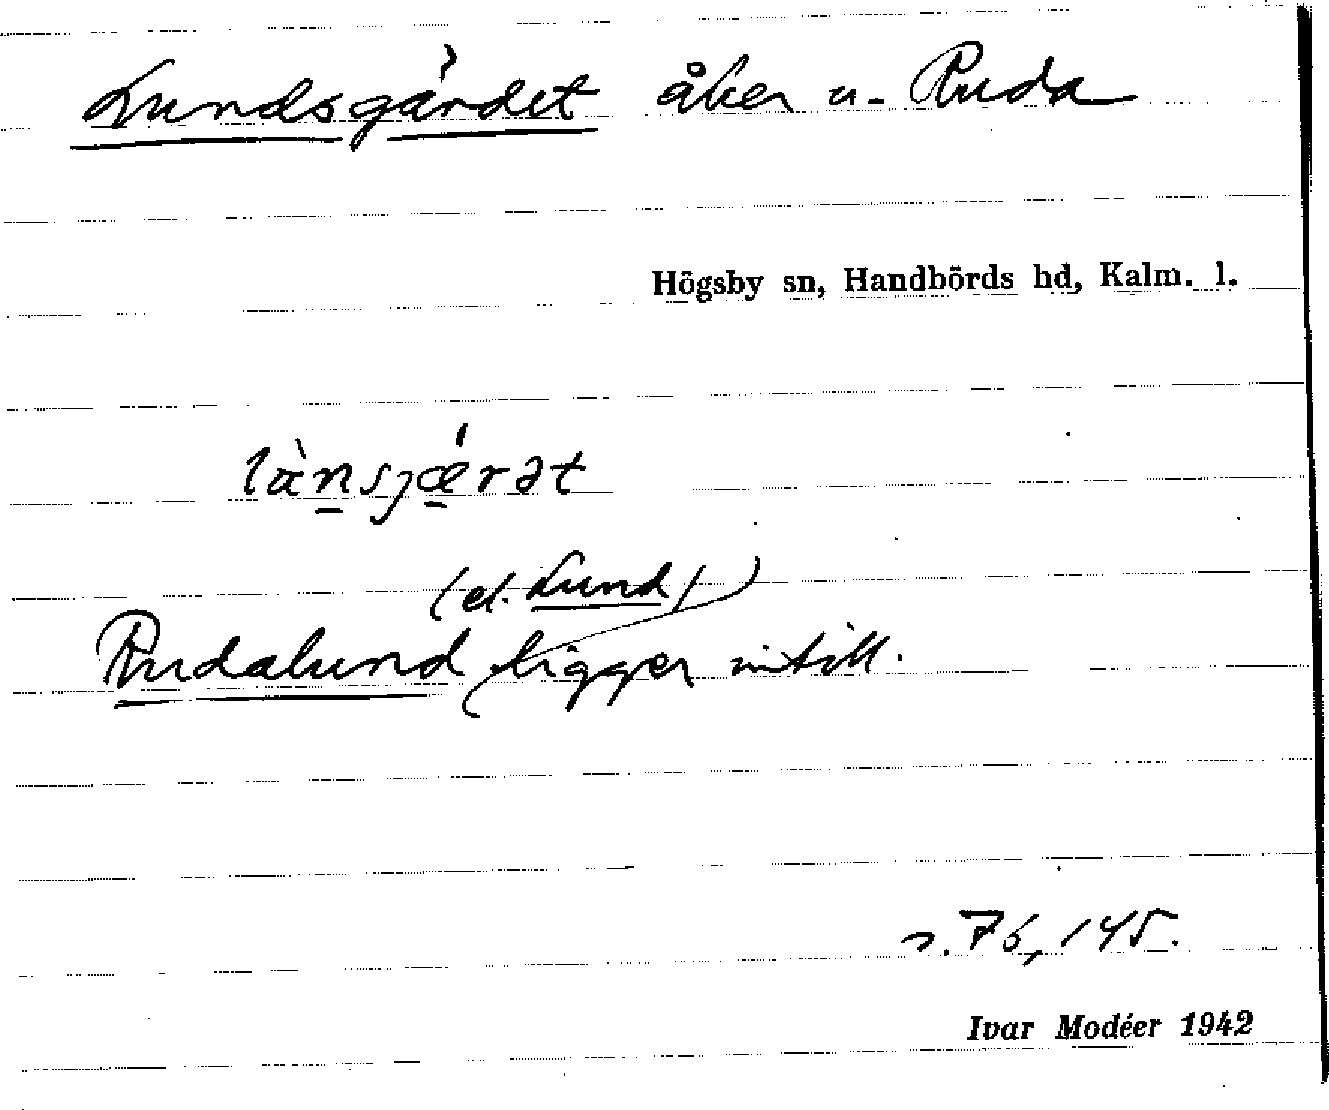 Lundsgärdet åker u. Ruda
Högsby sn, Handbörds hd, Kalm. l.
lànsjæ̀rət
(el. Lund)
Rudalund ligger intill.
s. 76, 145.
Ivar Modéer 1942